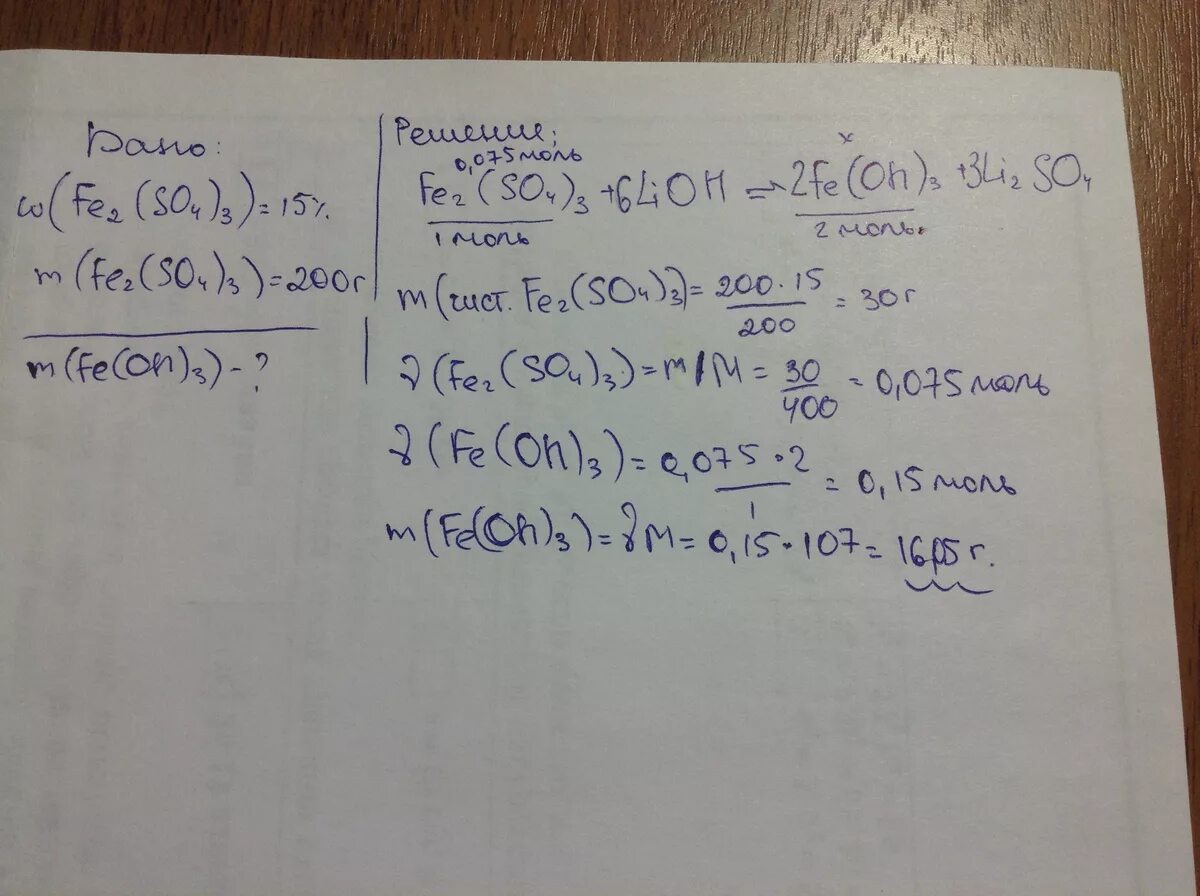 Дано:
ω(Fe₂(SO₄)₃)=15%
m(Fe₂(SO₄)₃)=200г
m(Fe(OH)₃)-?
Решение;
0,075моль
x
Fe₂(SO₄)₃+6LiOH=>2Fe(OH)₃+3Li₂SO₄
1моль
2моль.
m(чист. Fe₂(SO₄)₃)=200·15/200=30г
ν(Fe₂(SO₄)₃)=m/M=30/400=0,075моль
ν(Fe(OH)₃)=0,075·2/1=0,15моль
m(Fe(OH)₃)=νM=0,15·107=16,05г.